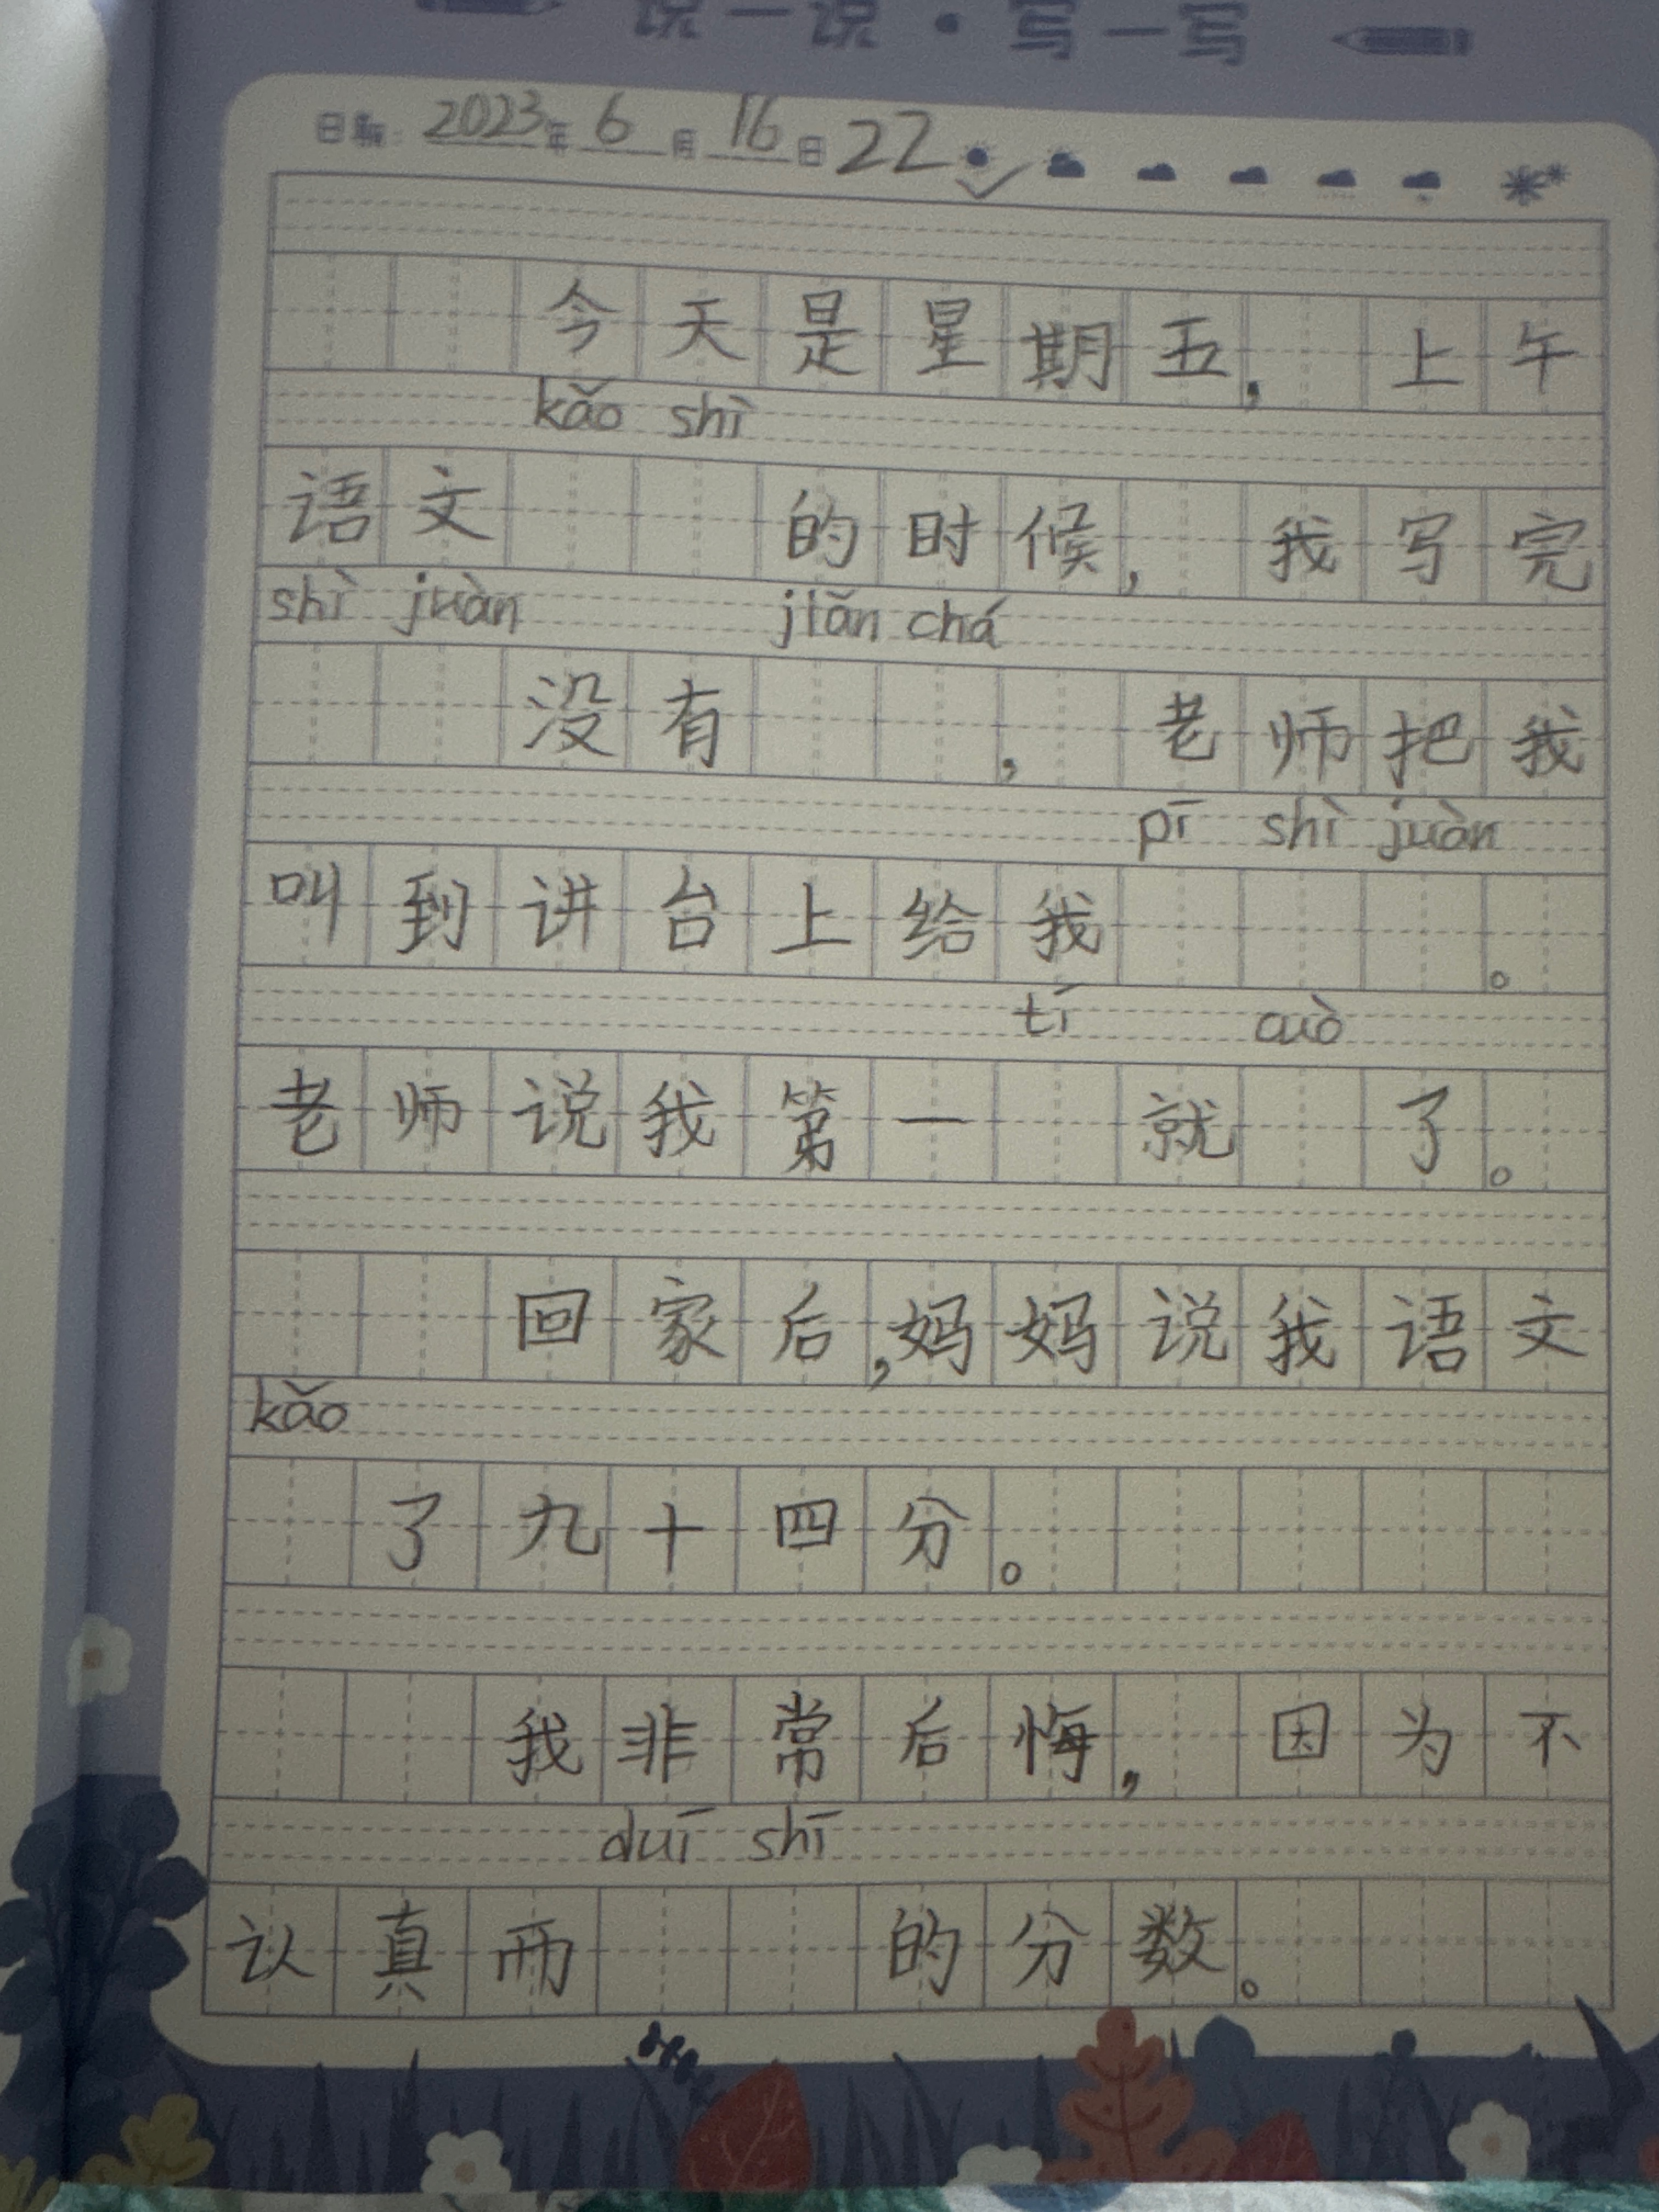 说一说·写一写
日期：2023年6月16日22
今天是星期五，上午
kǎo shì
语文 的时候，我写完
shì juàn jiǎn chá
没有 ，老师把我
pī shì juàn
叫到讲台上给我 。
tī cuò
老师说我第一 就 了。
回家后，妈妈说我语文
kǎo
了九十四分。
我非常后悔，因为不
duī shī
认真而 的分数。